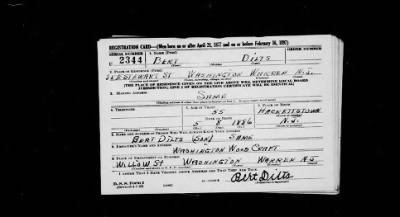 REGISTRATION CARD—(Men born on or after April 28, 1877 and on or before February 16, 1897)
SERIAL NUMBER 1. NAME (Print) ORDER NUMBER
U 2344 BERT DILTS
(First) (Middle) (Last)
2. PLACE OF RESIDENCE (Print)
STEWART ST WASHINGTON WARREN N.J.
(Number and street) (Town, township, village, or city) (County) (State)
[THE PLACE OF RESIDENCE GIVEN ON THE LINE ABOVE WILL DETERMINE LOCAL BOARD
JURISDICTION; LINE 2 OF REGISTRATION CERTIFICATE WILL BE IDENTICAL]
3. MAILING ADDRESS
SAME
4. TELEPHONE 5. AGE IN YEARS 6. PLACE OF BIRTH
55 HACKETTSTOWN
DATE OF BIRTH
1886 N.J.
7. NAME AND ADDRESS OF PERSON WHO WILL ALWAYS KNOW YOUR ADDRESS
BERT DILTS (SON) SAME
8. EMPLOYER'S NAME AND ADDRESS
WASHINGTON WOOD CRAFT
9. PLACE OF EMPLOYMENT OR BUSINESS
WILLOW ST WASHINGTON WARREN N.J.
I AFFIRM THAT I HAVE VERIFIED ABOVE ANSWERS AND THAT THEY ARE TRUE.
D. S. S. Form 1
Bert Dilts